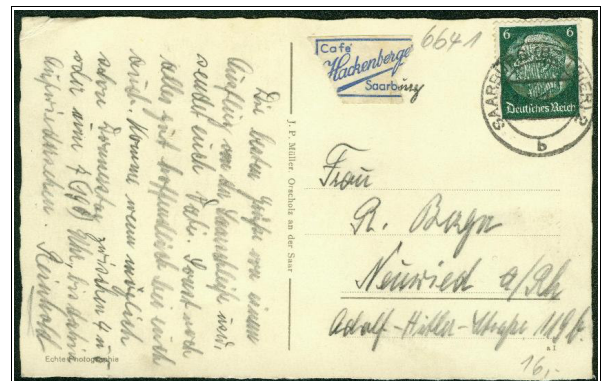 Die besten Grüße von einem
Ausflug von der Saarschleife usw.
sendet euch Vati. Sonst noch
alles gut hoffentlich bei euch
auch. Komme wenn möglich
schon Donnerstag zwischen 4 u.
oder um Uhr, bis dahin
Aufwiedersehen. Reinhold
Echte Photographie
J. P. Müller, Orscholz an der Saar
Café
Hackenberger
Saarburg
6641
6 6
Deutsches Reich
b
Frau
R. Berger
Neuwied a/Rh
Adolf-Hitler-Straße 119b.
a I
16,-